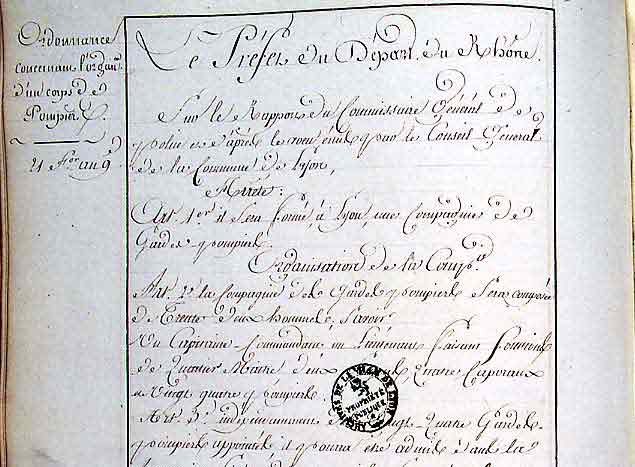 Ordonnance
concernant l'organ.
d'un corps de
Pompiers.
21 an 9
Le Préfet du Départ. du Rhône.
Sur le Rapport du Commissaire Général de
police et d'après le voeu émis par le Conseil Général
de la Commune de Lyon,
Arrete:
Art. 1er il sera formé, à Lyon, une Compagnie de
Gardes pompiers.
Organisation de la Comp.ie
Art. 2e la Compagnie de Gardes pompiers sera composée
de Trente deux hommes, Savoir
Un Capitaine Commandant un Lieutenant faisant fonctions
de Quartier Maitre deux Quatre Caporaux
Vingt quatre pompiers.
Art. 3e independamment Vingt Quatre Gardes
pompiers appointés il pourra etre admis
ARCHIVES DE LA VILLE DE LYON
PROPRIÉTÉ
PUBLIQUE